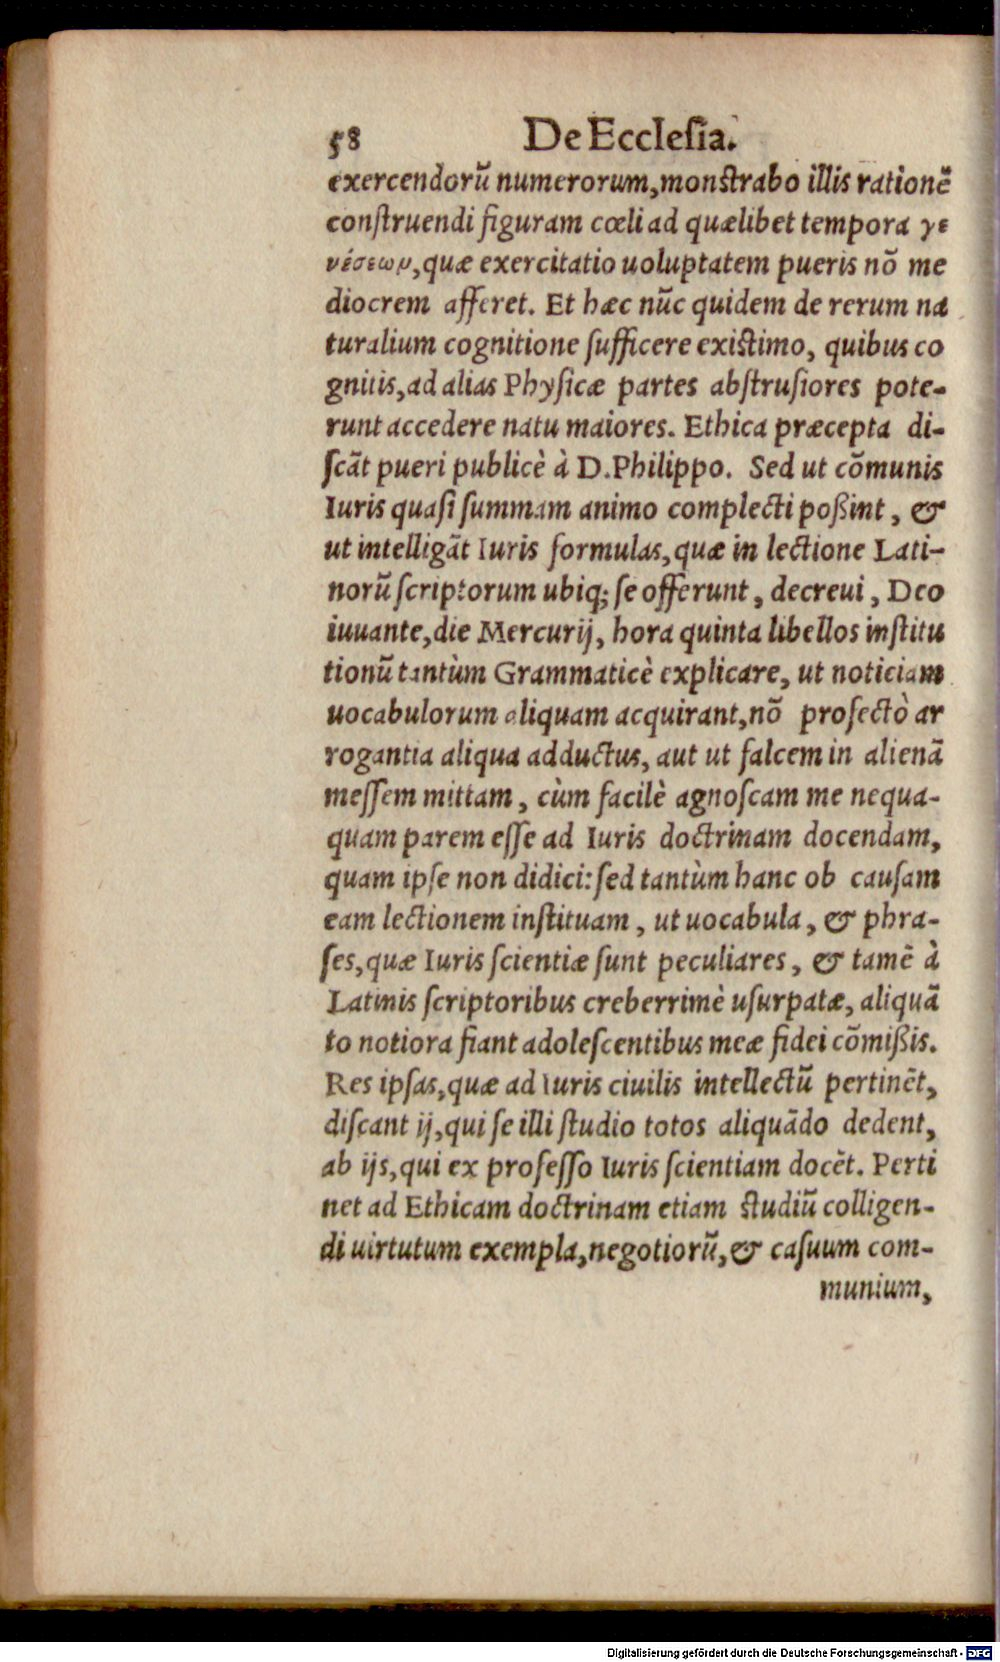 58 De Ecclesia.
exercendorũ numerorum, monstrabo illis rationẽ
construendi figuram cœli ad quælibet tempora γε
νέσεων, quæ exercitatio uoluptatem pueris nõ me
diocrem afferet. Et hæc nũc quidem de rerum na
turalium cognitione sufficere existimo, quibus co
gnitis, ad alias Physicæ partes abstrusiores pote-
runt accedere natu maiores. Ethica præcepta di-
scãt pueri publicè à D. Philippo. Sed ut cõmunis
Iuris quasi summam animo complecti poßint, &
ut intelligãt Iuris formulas, quæ in lectione Lati-
norũ scriptorum ubiq; se offerunt, decreui, Deo
iuuante, die Mercurij, hora quinta libellos institu
tionũ tantùm Grammaticè explicare, ut noticiam
uocabulorum aliquam acquirant, nõ profectò ar
rogantia aliqua adductus, aut ut falcem in alienã
messem mittam, cùm facilè agnoscam me nequa-
quam parem esse ad Iuris doctrinam docendam,
quam ipse non didici: sed tantùm hanc ob causam
eam lectionem instituam, ut uocabula, & phra-
ses, quæ Iuris scientiæ sunt peculiares, & tamẽ à
Latinis scriptoribus creberrimè usurpatæ, aliquã
to notiora fiant adolescentibus meæ fidei cõmißis.
Res ipsas, quæ ad Iuris ciuilis intellectũ pertinẽt,
discant ij, qui se illi studio totos aliquãdo dedent,
ab ijs, qui ex professo Iuris scientiam docẽt. Perti
net ad Ethicam doctrinam etiam studiũ colligen-
di uirtutum exempla, negotiorũ, & casuum com-
munium,
Digitalisierung gefördert durch die Deutsche Forschungsgemeinschaft - DFG